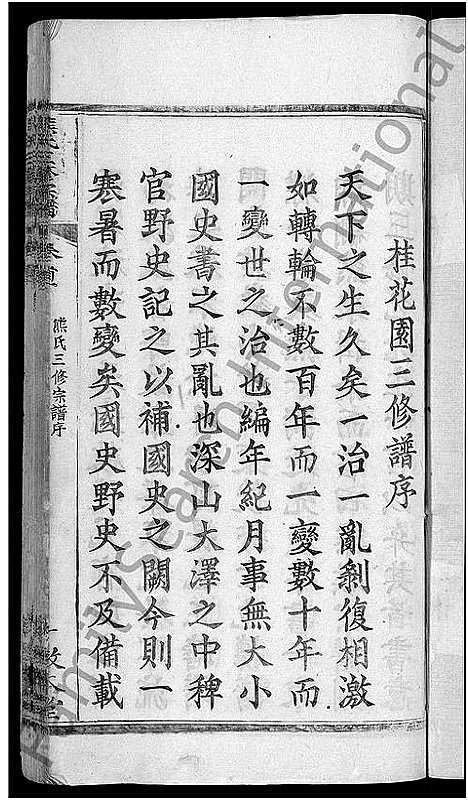 桂花園三修譜序
天下之生久矣一治一亂剝復相激
如轉輪不數百年而一變數十年而
一變世之治也編年紀月事無大小
國史書之其亂也深山大澤之中稗
官野史記之以補國史之闕今則一
寒暑而數變矣國史野史不及備載
熊氏三修宗譜序
FamilySearch International